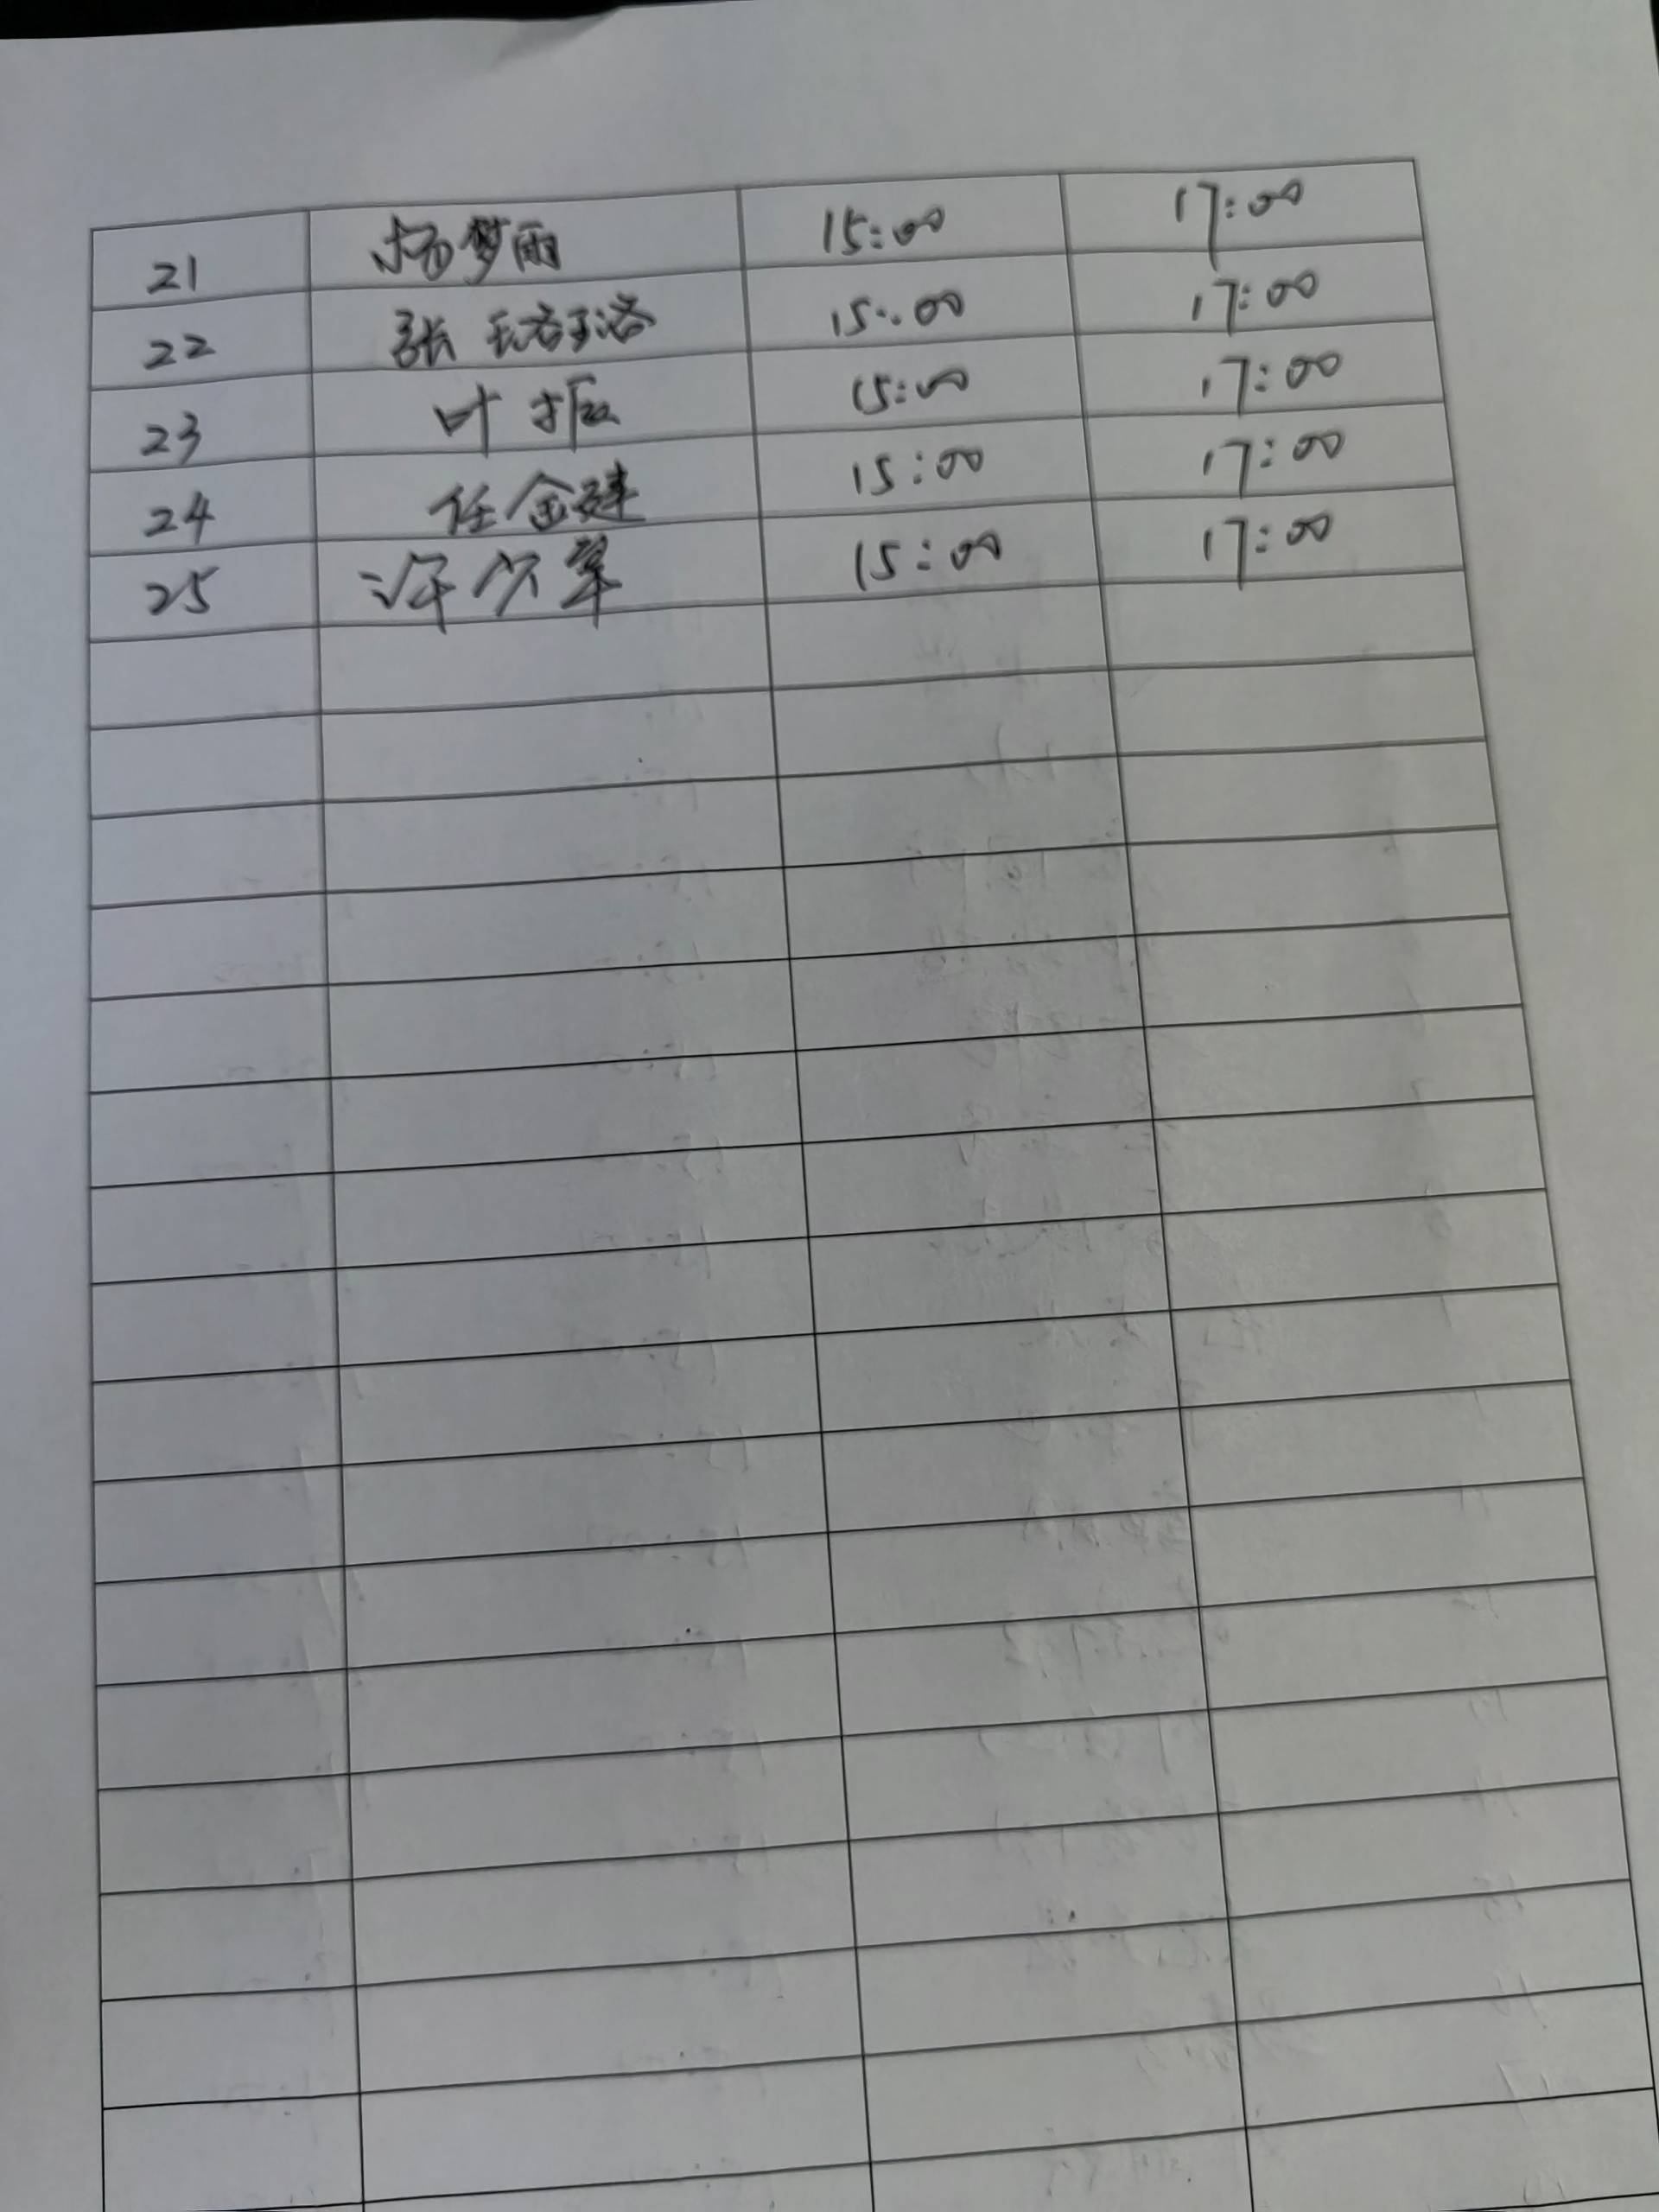 21 杨梦雨 15:00 17:00
22 张珺珞 15:00 17:00
23 叶振 15:00 17:00
24 任金建 15:00 17:00
25 15:00 17:00